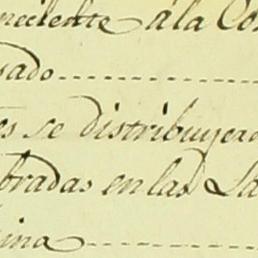 neciente â la Co
sado
es se distribuyero
bradas en las La
ina